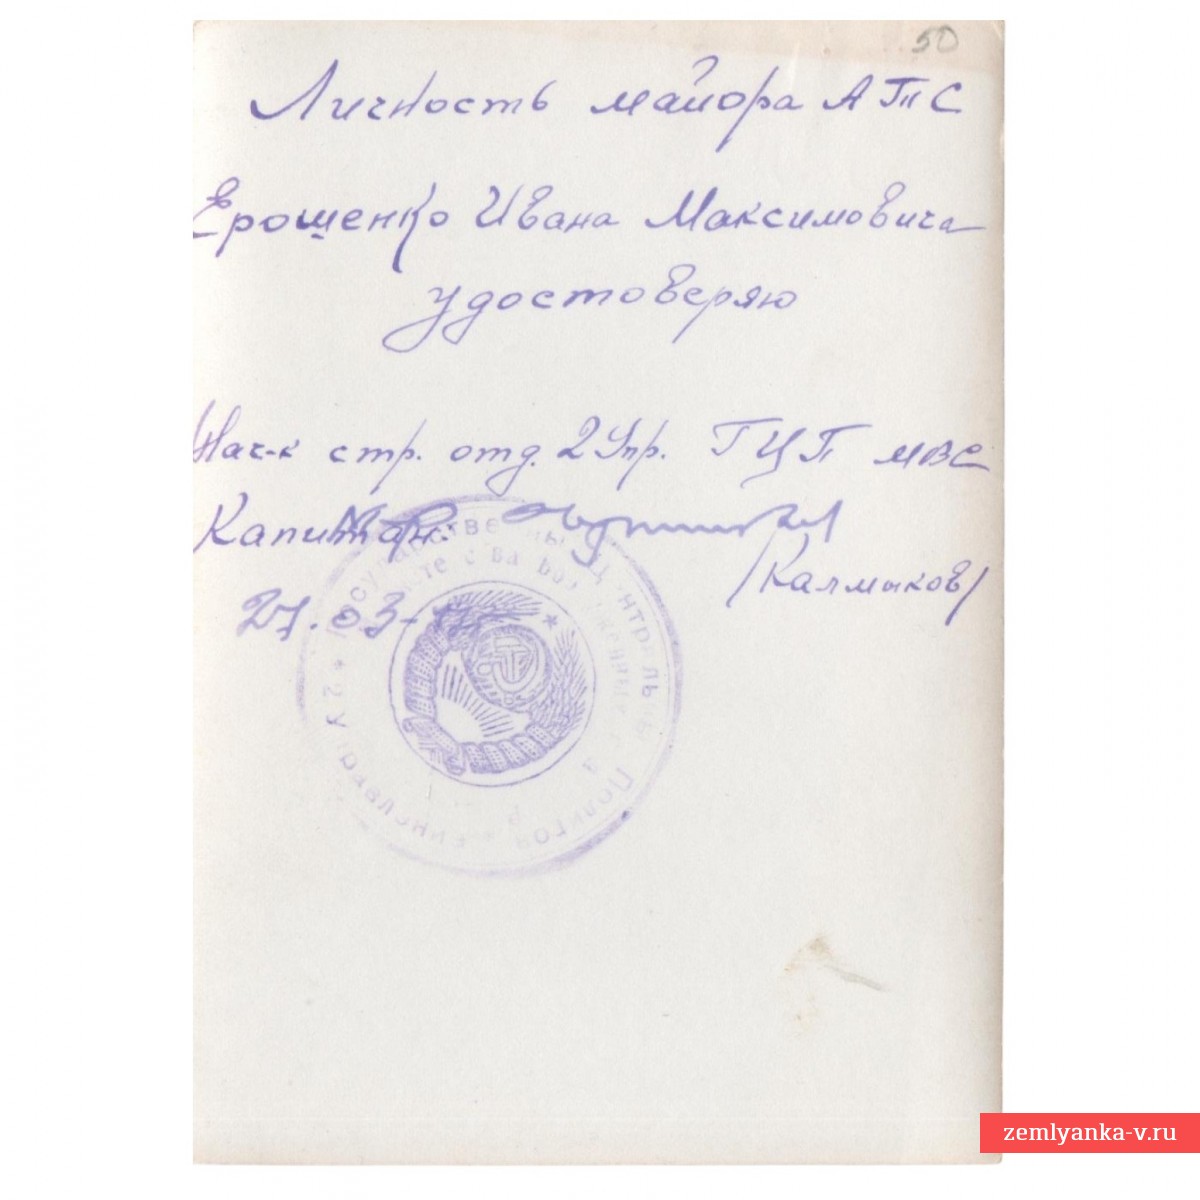 50
Личность майора АТС
Ерошенко Ивана Максимовича
удостоверяю
Нач-к стр. отд. 2 Упр. ГЦП МВС
Капитан:
/Калмыков/
27.03-
Государственный Центральный Полигон
2 Управ
zemlyanka-v.ru